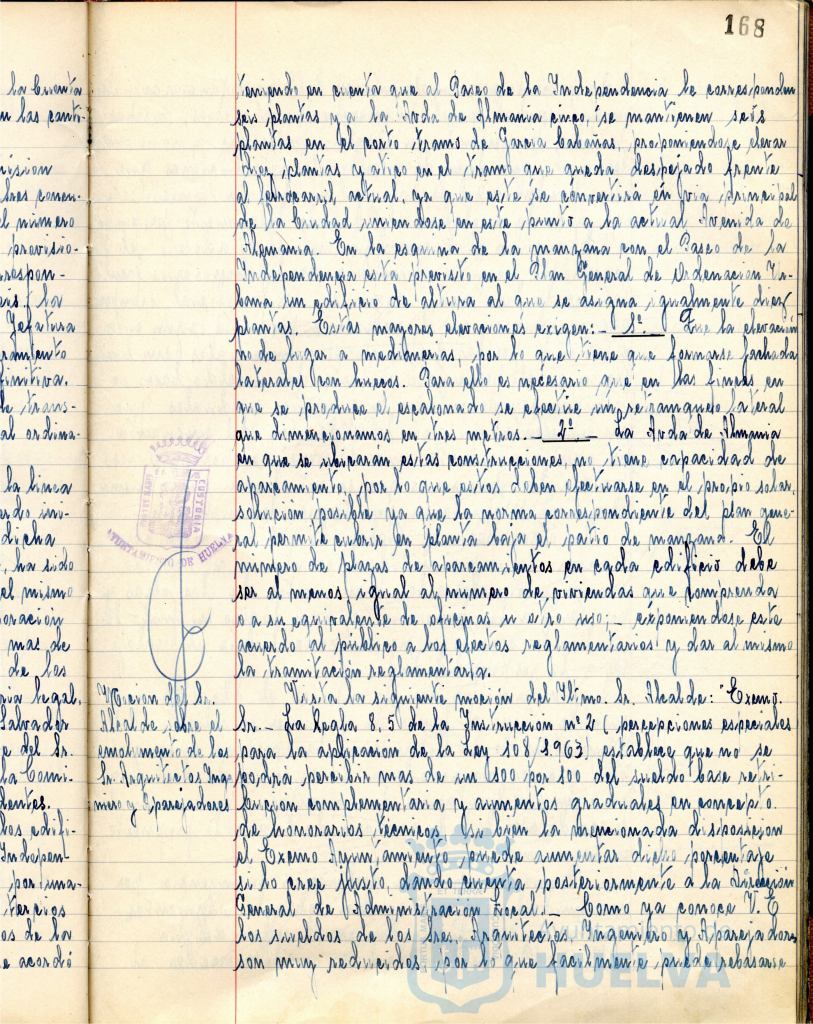 168
la Cuenta
n las canti-
visión
tres conce-
l número
provisio-
respon-
la
Jefatura
initiva.
trans-
al ordina-
la linea
dicha
, ha sido
el mismo
oración
mas de
de los
ria legal.
Salvador
e del Sr.
la Comi-
dentes.
los edifi-
Indepen-
por una-
tercios
os de la
e acordó
teniendo en cuenta que al Paseo de la Independencia le corresponden
seis plantas y a la Avda de Almania cinco, se mantienen seis
plantas en el corto tramo de Garcia Cabañas, proponiendose elevar
diez plantas y atico en el tramo que queda despejado frente
al ferrocarril actual, ya que este se convertirá en via principal
de la Ciudad uniendose en este punto a la actual Avenida de
Alemania. En la esquina de la manzana con el Paseo de la
Independencia esta previsto en el Plan General de Ordenacion Ur-
bana un edificio de altura al que se asigna igualmente diez
plantas. Estas mayores elevaciones exigen: - 1º. Que la elevación
no de lugar a medianerias, por lo que tiene que formarse fachada
laterales con huecos. Para ello es necesario que en las fincas en
que se produce el escalonado se efectue un retranqueo lateral
que dimencionamos en tres metros. - 2º - La Avda de Almania
en que se ubicaran estas construcciones, no tiene capacidad de
aparcamiento, por lo que estos deben efectuarse en el propio solar,
solución posible ya que la norma correspondiente del plan gene-
ral permite cubrir en planta baja el patio de manzana. El
numero de plazas de aparcamientos en cada edificio debe
ser al menos igual al número de viviendas que comprenda
o a su equivalente de oficinas u otro uso; - exponiendose este
acuerdo al público a los efectos reglamentarios y dar al mismo
la tramitación reglamentaria.
CUSTODIA
AYUNTAMIENTO DE HUELVA
Moción del Sr.
Alcalde sobre el
emolumento de los
Sr. Arquitectos Inge
niero y Aparejadores
Vista la siguiente moción del Iltmo. Sr. Alcalde: "Excmo.
Sr. - La Regla 8,5 de la Instrucción nº 2 (percepciones especiales
para la aplicacion de la Ley 108/1963) establece que no se
podrá percibir mas de un 100 por 100 del sueldo base retri-
bución complementaria y aumentos graduales en concepto
de honorarios técnicos, si bien la mencionada disposicion
el Excmo Ayuntamiento puede aumentar dicho porcentaje
si lo cree justo, dando cuenta posteriormente a la Dirección
General de Administracion Local. - Como ya conoce V. E
los sueldos de los Sres. Arquitectos, Ingeniero y Aparejadores
son muy reducidos, por lo que facilmente puede rebasarse
Ayuntamiento de
HUELVA